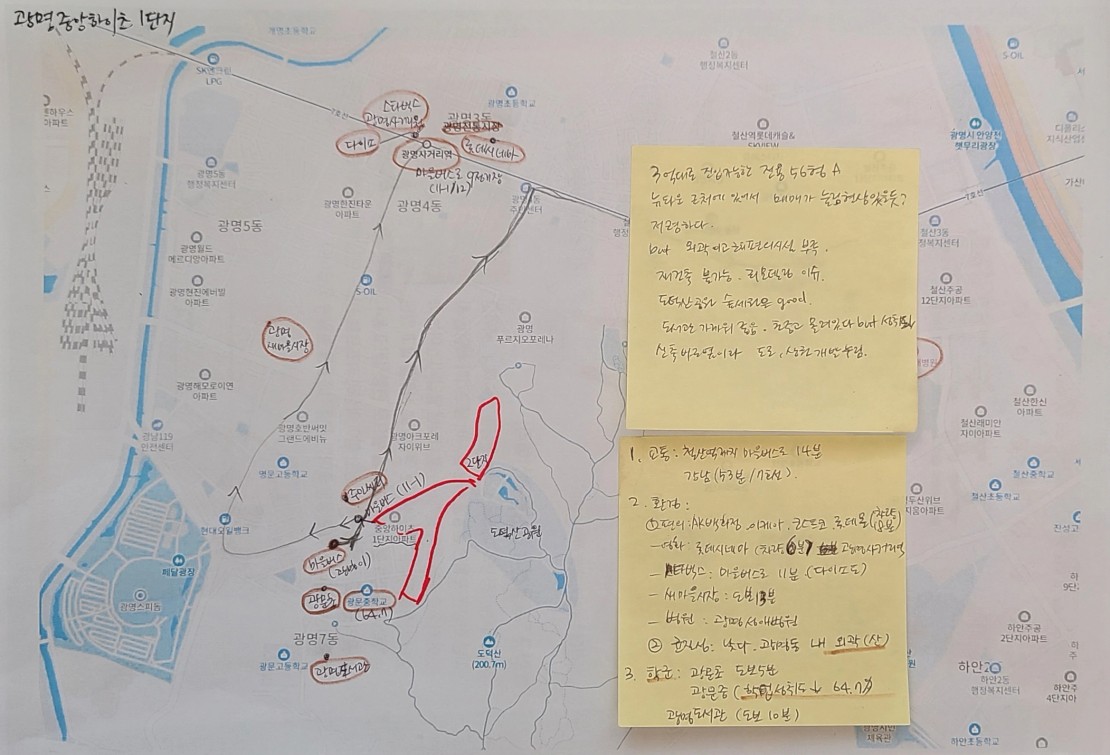 광명중앙하이츠 1단지
개명초등학교
SK엔크린
LPG
하우스
아파트
7호선
스타벅스
광명사거리역
다이소
광명3동
광명전통시장
롯데시네마
광명초등학교
광명사거리역
마을버스로 9정거장
(11-1/12)
광명5동
행정복지센터
광명한진타운
아파트
광명4동
광명5동
광명월드
메르디앙아파트
광명현진에버빌
아파트
S-OIL
광명
새마을시장
광명
푸르지오포레나
광명해모로이연
아파트
광명호반써밋
그랜드에비뉴
광명아크포레
자이위브
광남119
안전센터
명문고등학교
2단지
마을버스 (11-1)
현대오일뱅크
중앙하이츠
1단지아파트
도덕산공원
마을버스
페달광장
광명스피돔
광문초
광문중학교
(64.7)
광명7동
광문고등학교
광명도서관
도덕산
(200.7m)
철산2동
행정복지센터
S-OIL
철산역롯데캐슬&
SKVIEW
아파트
광명시 안양천
햇무리광장
디클리스
지식산업센
가산
7호선
철산3동
행정복지센터
철산주공
12단지아파트
철산한신
아파트
철산래미안
자이아파트
철산중학교
철산초등학교
두산위브
하안주공
2단지아파트
하안2동
행정복지센터
하안주
4단지아
하안초등학교
하안중학교
3억대로 진입가능한 전용 56형 A
뉴타운 근처에 있어서 매매가 눌림현상있을듯?
저평하다.
but 외곽이고 주변편의시설 부족.
재건축 불가능. 리모델링 이슈.
도덕산공원 숲세권은 good.
도서관 가까워 좋음. 초중고 몰려있다 but 성취도↓
1. 교통: 철산역까지 마을버스로 14분
강남 (53분/7호선)
2. 환경
① 편의: AK백화점, 이케아, 코스트코, 롯데몰 (차로 20분)
- 영화: 롯데시네마 (차로 6분) 광명사거리역
- 스타벅스: 마을버스로 11분 (다이소도)
- 새마을시장: 도보 13분
- 병원: 광명성애병원
② 균질성: 낮다. 광명동 내 외곽(산)
3. 학군: 광문초 도보5분
광문중 (학업성취도↓ 64.7)
광명도서관 (도보 10분)